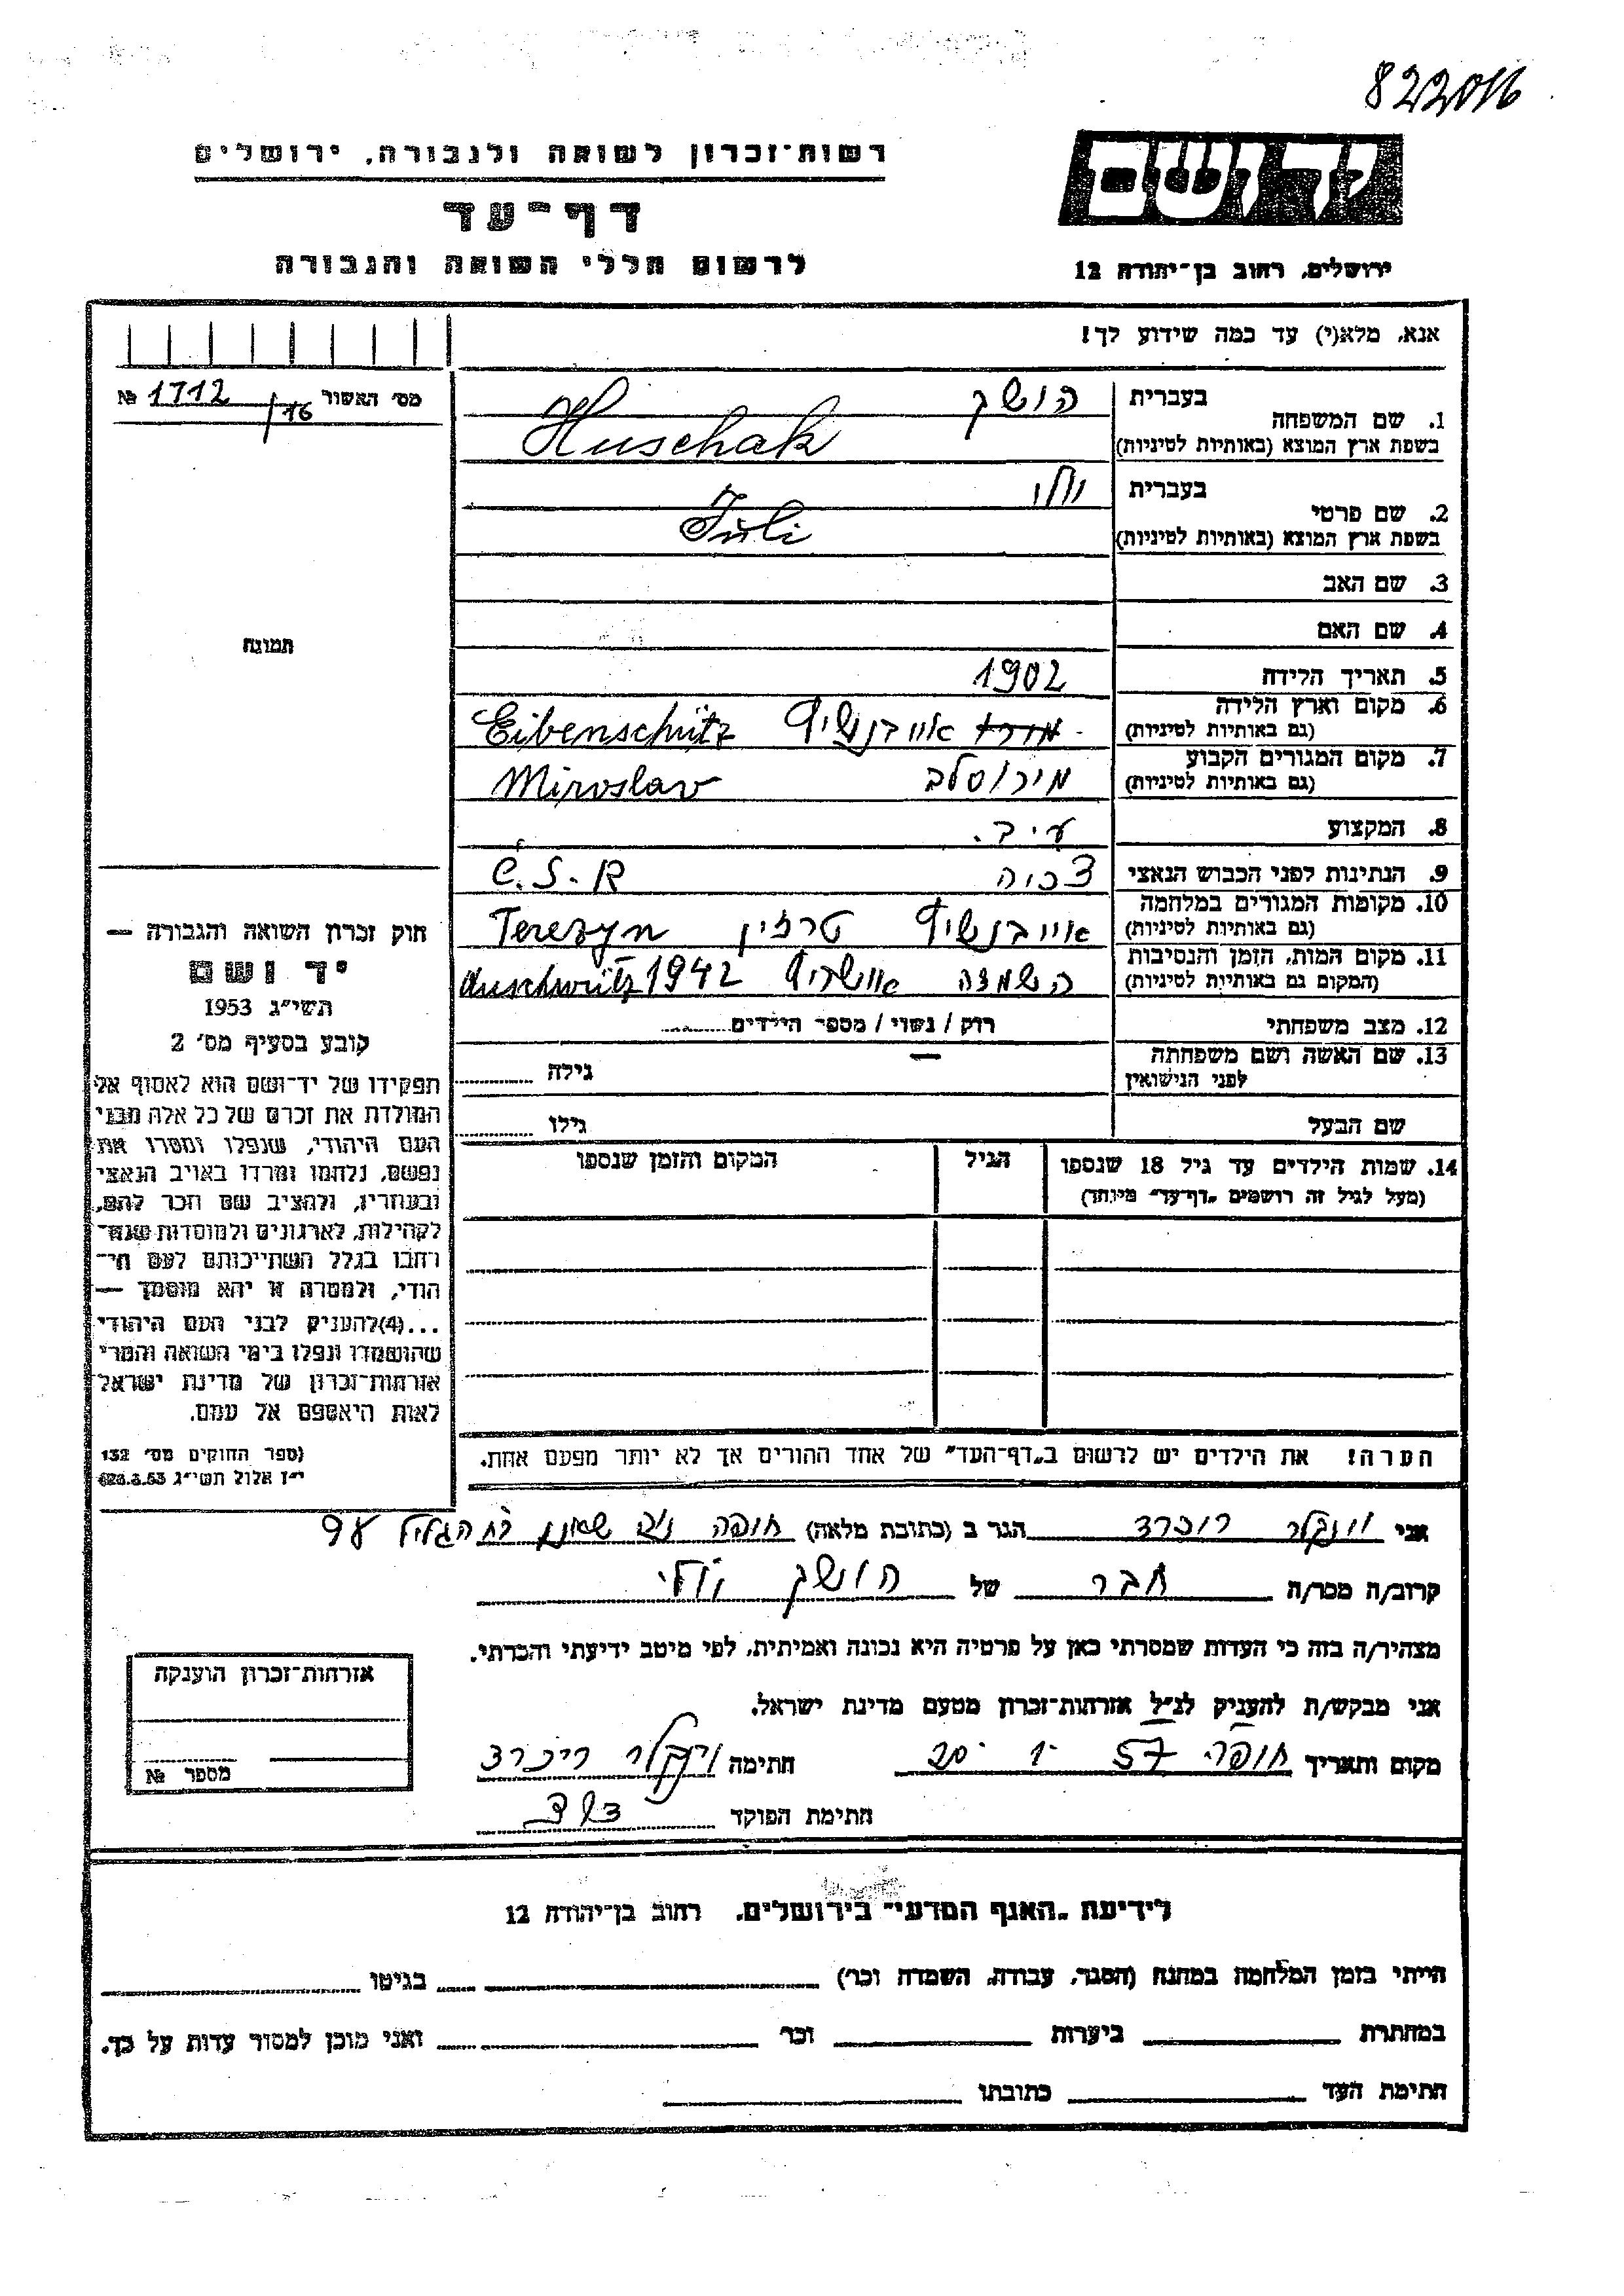 822016
רשות־זכרון לשואה ולגבורה, ירושלים
יד ושם
דף־עד
לרשום חללי השואה והגבורה
ירושלים, רחוב בן־יהודה 12
אנא, מלא(י) עד כמה שידוע לך!
מס׳ האשור № 1712/16
1. שם המשפחה
בעברית הושק
בשפת ארץ המוצא (באותיות לטיניות) Huschak
2. שם פרטי
בעברית
בשפת ארץ המוצא (באותיות לטיניות) Juli
3. שם האב
4. שם האם
תמונה
5. תאריך הלידה 1902
6. מקום וארץ הלידה
(גם באותיות לטיניות) אייבנשיץ Eibenschütz
7. מקום המגורים הקבוע
(גם באותיות לטיניות) מירוסלב Miroslav
8. המקצוע
9. הנתינות לפני הכבוש הנאצי צ׳כיה Č.S.R
10. מקומות המגורים במלחמה
(גם באותיות לטיניות) אייבנשיץ טרזין Terezyn
11. מקום המות, הזמן והנסיבות
(המקום גם באותיות לטיניות) השמדה אושויץ Auschwitz 1942
12. מצב משפחתי רווק / נשוי / מספר הילדים
13. שם האשה ושם משפחתה
לפני הנישואין — גילה
שם הבעל גילו
14. שמות הילדים עד גיל 18 שנספו הגיל המקום והזמן שנספו
(מעל לגיל זה רושמים „דף־עד״ מיוחד)
חוק זכרון השואה והגבורה —
יד ושם
תשי״ג 1953
קובע בסעיף מס׳ 2
תפקידו של יד־ושם הוא לאסוף אל
המולדת את זכרם של כל אלה מבני
העם היהודי, שנפלו ומסרו את
נפשם, נלחמו ומרדו באויב הנאצי
ובעוזריו, ולהציב שם וזכר להם,
לקהילות, לארגונים ולמוסדות שנח־
רבו בגלל השתייכותם לעם הי־
הודי, ולמטרה זו יהא מוסמך —
...(4) להעניק לבני העם היהודי
שהושמדו ונפלו בימי השואה והמרי
אזרחות־זכרון של מדינת ישראל
לאות היאספם אל עמם.
(ספר החוקים מס׳ 132
י״ז אלול תשי״ג 28.8.53)
הערה! את הילדים יש לרשום ב„דף־העד״ של אחד ההורים אך לא יותר מפעם אחת.
אני וינקלר ריכרד הגר ב (כתובת מלאה) חיפה נוה שאנן רח הגליל 98
קרוב/ה מכר/ה חבר של הושק
מצהיר/ה בזה כי העדות שמסרתי כאן על פרטיה היא נכונה ואמיתית, לפי מיטב ידיעתי והכרתי.
אני מבקש/ת להעניק לנ״ל אזרחות־זכרון מטעם מדינת ישראל.
מקום ותאריך חיפה 57 1 20 חתימה וינקלר ריכרד
חתימת הפוקד
אזרחות־זכרון הוענקה
מספר №
לידיעת „האגף המדעי״ בירושלים, רחוב בן־יהודה 12
הייתי בזמן המלחמה במחנה (הסגר, עבודה, השמדה וכו׳) בגיטו
במחתרת ביערות וכו׳ ואני מוכן למסור עדות על כך.
חתימת העד כתובתו